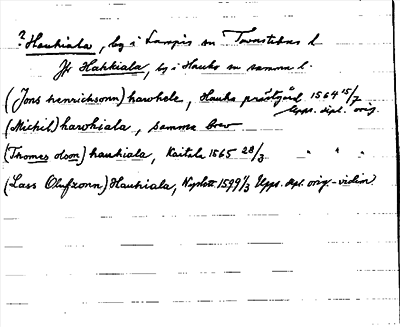 ? Haukiala, by i Lampis sn Tavastehus l.
Jfr Hakkiala, by i Hauho sn samma l.
(Jons henrichsonn) harokele, Hauho prästgård 1564 15/7
Upps. dipl. orig.
(Michil) harokiala, samma brev
(Thomes olson) haukiala, Kaitala 1565 28/3 " " "
(Lass Olufzonn) Haukiala, Nyslott 1599 1/3 Upps. dipl. orig.-vidim.